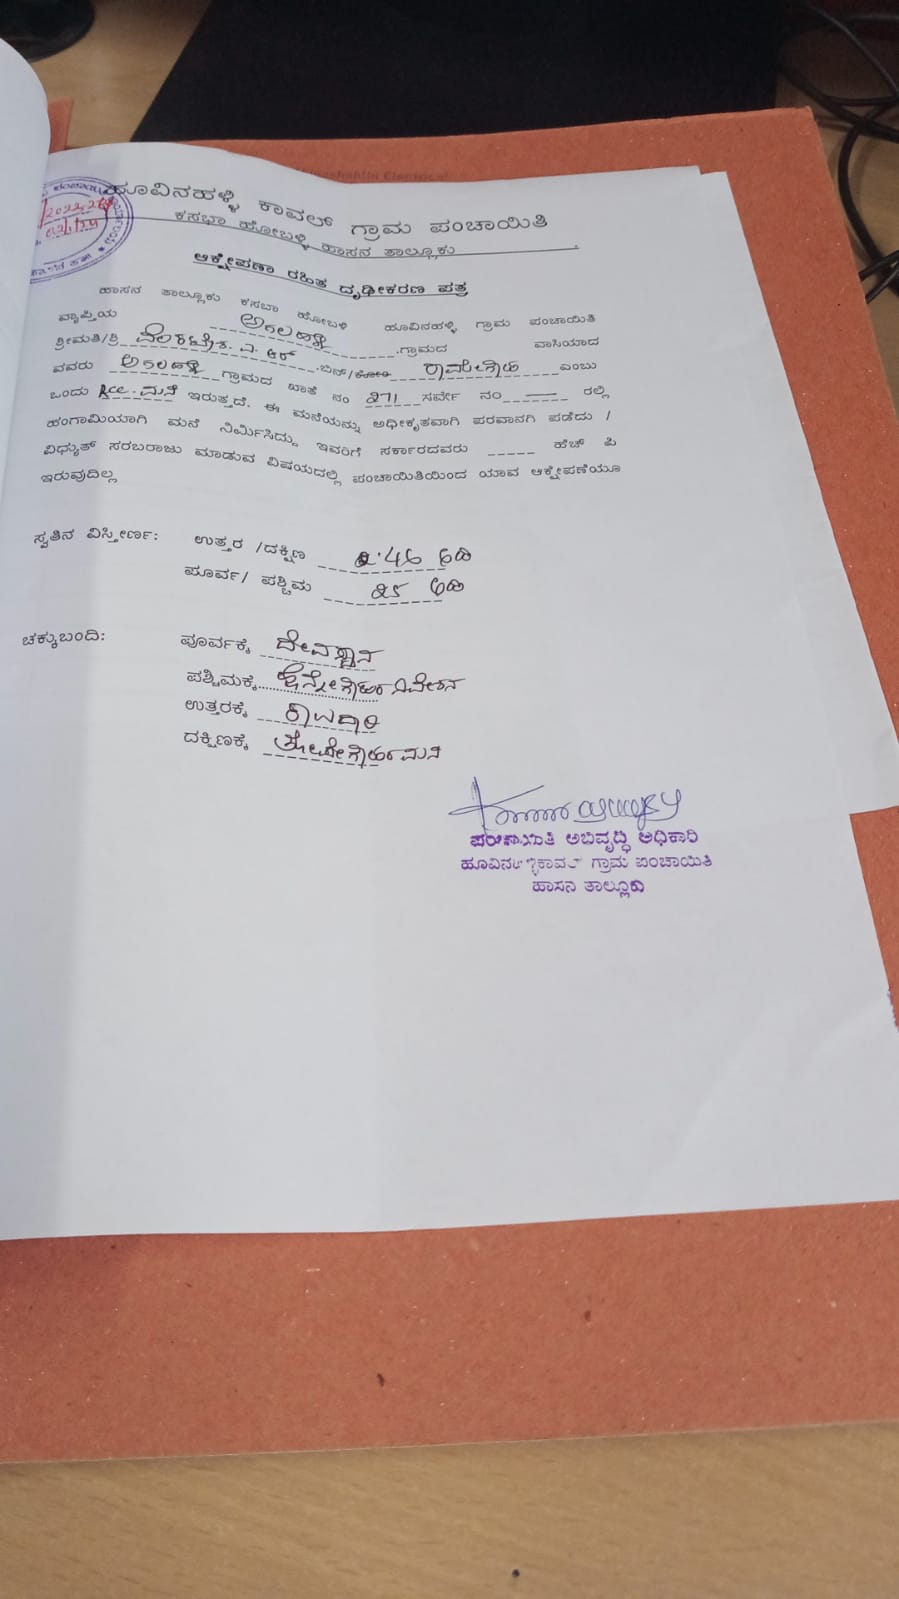 2022,23
02/1/24
ಹೂವಿನಹಳ್ಳಿ ಕಾವಲ್ ಗ್ರಾಮ ಪಂಚಾಯಿತಿ
ಕಸಬಾ ಹೋಬಳಿ ಹಾಸನ ತಾಲ್ಲೂಕು
ಆಕ್ಷೇಪಣಾ ರಹಿತ ದೃಢೀಕರಣ ಪತ್ರ
ಹಾಸನ ತಾಲ್ಲೂಕು ಕಸಬಾ ಹೋಬಳಿ ಹೂವಿನಹಳ್ಳಿ ಗ್ರಾಮ ಪಂಚಾಯಿತಿ
ವ್ಯಾಪ್ತಿಯ ಗ್ರಾಮದ ವಾಸಿಯಾದ
ಶ್ರೀಮತಿ/ಶ್ರಿ ಎ. ಆರ್ ಬಿನ್/ಕೋಂ ರಾಮೇಗೌಡ ಎಂಬು
ವವರು ಗ್ರಾಮದ ಖಾತೆ ನಂ 271 ಸರ್ವೇ ನಂ — ರಲ್ಲಿ
ಒಂದು Rcc ಮನೆ ಇರುತ್ತದೆ. ಈ ಮನೆಯನ್ನು ಅಧೀಕೃತವಾಗಿ ಪರವಾನಗಿ ಪಡೆದು /
ಹಂಗಾಮಿಯಾಗಿ ಮನೆ ನಿರ್ಮಿಸಿದ್ದು ಇವರಿಗೆ ಸರ್ಕಾರದವರು _____ ಹೆಚ್ ಪಿ
ವಿಧ್ಯುತ್ ಸರಬರಾಜು ಮಾಡುವ ವಿಷಯದಲ್ಲಿ ಪಂಚಾಯಿತಿಯಿಂದ ಯಾವ ಆಕ್ಷೇಪಣೆಯೂ
ಇರುವುದಿಲ್ಲ
ಸ್ವತಿನ ವಿಸ್ತೀರ್ಣ: ಉತ್ತರ /ದಕ್ಷಿಣ 46 ಅಡಿ
ಪೂರ್ವ/ ಪಶ್ಚಿಮ 25 ಅಡಿ
ಚಕ್ಕುಬಂದಿ: ಪೂರ್ವಕ್ಕೆ ದೇವಸ್ಥಾನ
ಪಶ್ಚಿಮಕ್ಕೆ ನಿವೇಶನ
ಉತ್ತರಕ್ಕೆ ರಾಜದಾರಿ
ದಕ್ಷಿಣಕ್ಕೆ ಮನೆ
ಪಂಚಾಯಿತಿ ಅಭಿವೃದ್ಧಿ ಅಧಿಕಾರಿ
ಹೂವಿನಹಳ್ಳಿಕಾವಲ್ ಗ್ರಾಮ ಪಂಚಾಯಿತಿ
ಹಾಸನ ತಾಲ್ಲೂಕು